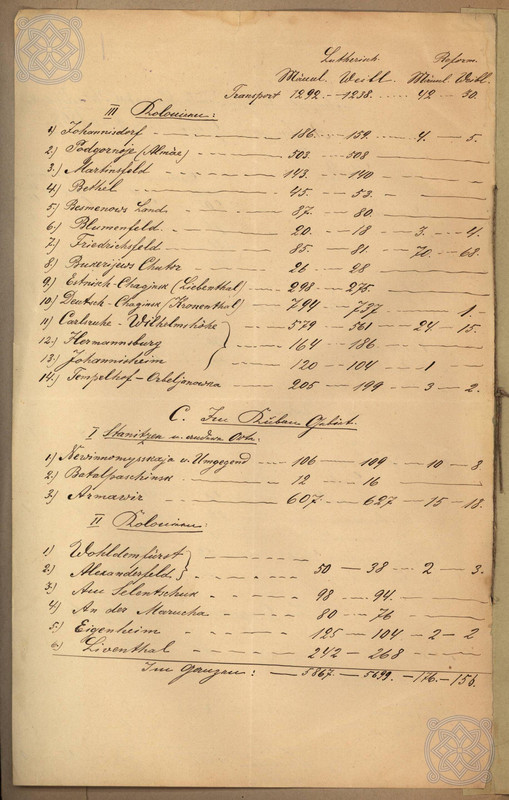 Lutherisch. Reform.
Männl. Weibl. Männl. Weibl.
Transport 1292. - 1238. 42 30.
III Kolonieen:
1) Johannisdorf 186. 159. 4. 5.
2.) Podgornoje (Almäe) 503. 508
3.) Martinsfeld 143. 140
4.) Bethel 45. 53.
5.) Besmenows Land 87. 80
6.) Blumenfeld 20. 18 3. 4.
7.) Friedrichsfeld 85. 81. 70. 68.
8.) Chutor 26 28
9.) Estnisch-Chaginsk (Liebenthal) 298 275.
10.) Deutsch-Chaginsk (Kronenthal) 794 737 1.
11.) Carlsruhe - Wilhelmshöhe 579 561 24. 15.
12.) Hermannsburg 164 186
13.) Johannisheim 120 104 1
14.) Tempelhof - Orbeljanowka 205 199 3 2.
C. Im Kuban Gebiet.
I Stanitzen u. andere Orte.
1.) Newinnomysskaja u. Umgegend 106 109 10 8
2.) Batalpaschinsk 12 16
3.) Armawir 607. 627 15 18.
II Kolonieen:
1.) Wohldemfürst
2.) Alexanderfeld 50 38 2 3.
3.) Am Selentschuk 98 94.
4.) An der Marucha 80 76
5.) Eigenheim 125 104 2 2
6.) Liventhal 242 268
Im Ganzen: 5867. 5699. 176. 156.